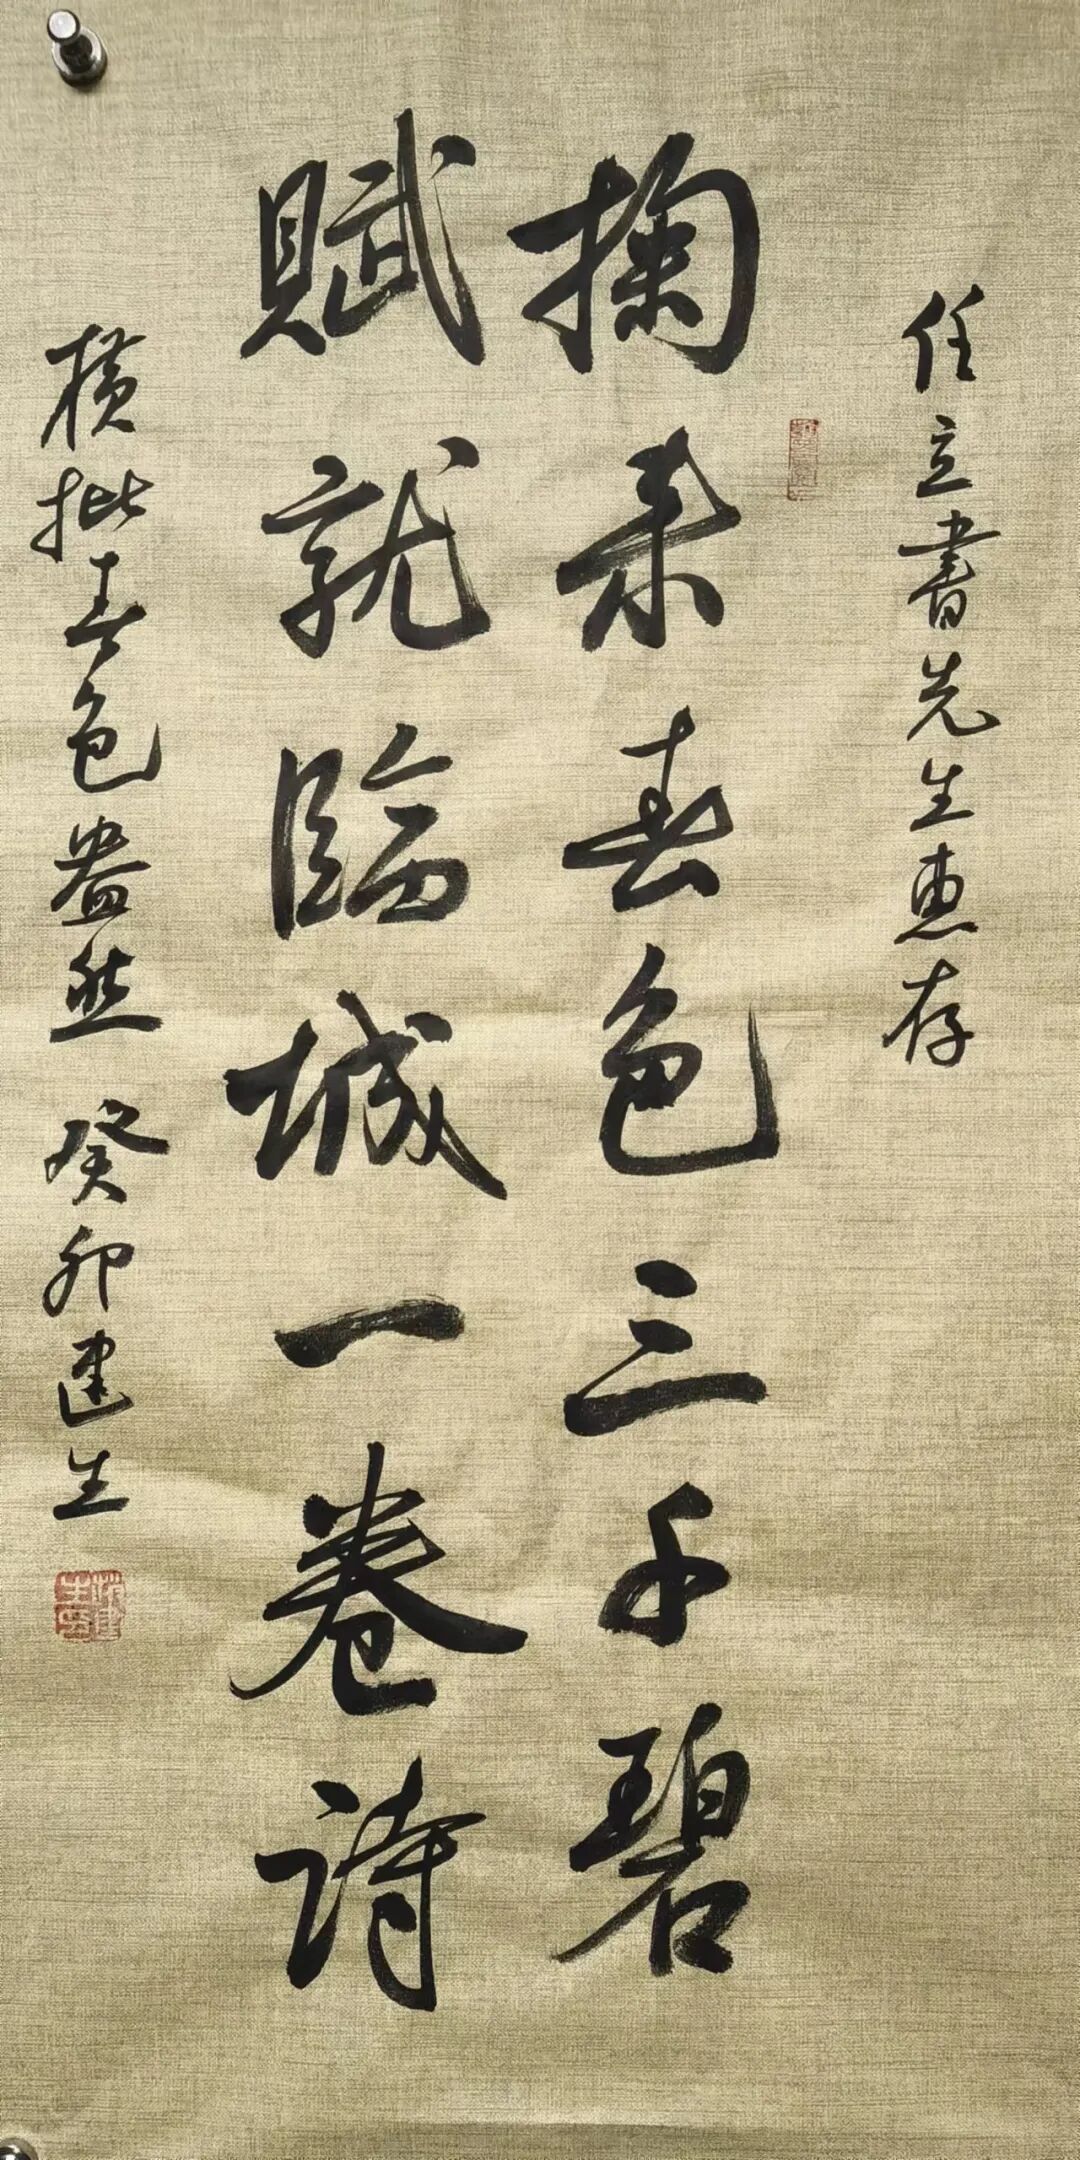 任立書先生惠存
掬来春色三千碧
賦就临城一卷诗
横批春色盎然 癸卯建生